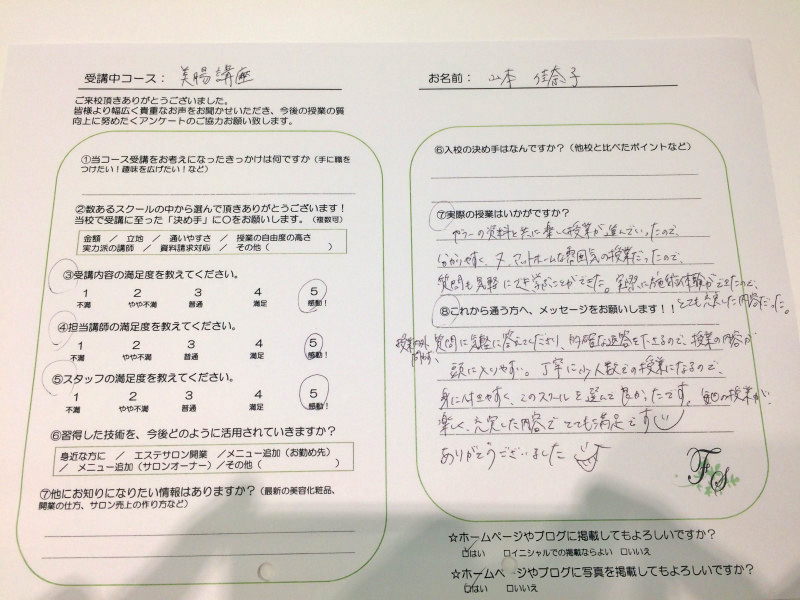 受講中コース： 美腸講座
ご来校頂きありがとうございました。
皆様より幅広く貴重なお声をお聞かせいただき、今後の授業の質
向上に努めたくアンケートのご協力お願い致します。
①当コース受講をお考えになったきっかけは何ですか（手に職を
つけたい！趣味を広げたい！など）
②数あるスクールの中から選んで頂きありがとうございます！
当校で受講に至った「決め手」に〇をお願いします。（複数可）
金額 ／ 立地 ／ 通いやすさ ／ 授業の自由度の高さ
実力派の講師 ／ 資料請求対応 ／ その他（ ）
③受講内容の満足度を教えてください。
1 2 3 4 5
不満 やや不満 普通 満足 感動！
④担当講師の満足度を教えてください。
1 2 3 4 5
不満 やや不満 普通 満足 感動！
⑤スタッフの満足度を教えてください。
1 2 3 4 5
不満 やや不満 普通 満足 感動！
⑥習得した技術を、今後どのように活用されていきますか？
身近な方に ／ エステサロン開業 ／メニュー追加（お勤め先）
／ メニュー追加（サロンオーナー）／その他（ ）
⑦他にお知りになりたい情報はありますか？（最新の美容化粧品、
開業の仕方、サロン売上の作り方など）
お名前： 山本 佳奈子
⑥入校の決め手はなんですか？（他校と比べたポイントなど）
⑦実際の授業はいかがですか？
カラーの資料と共に楽しく授業が進んでいったので、
分かりやすく、又、アットホームな雰囲気の授業だったので、
質問も気軽に学ぶことができた。実際に施術体験ができたので、
とても充実した内容だった。
⑧これから通う方へ、メッセージをお願いします！！
授業内外 質問に気軽に答えてくださり、的確な返答を下さるので、授業の内容が
頭に入りやすい。丁寧に少人数での授業になるので、
身に付きやすく、このスクールを選んで良かったです。毎回の授業が、
楽しく、充実した内容でとても満足です
ありがとうございました
FS
☆ホームページやブログに掲載してもよろしいですか？
□はい □イニシャルでの掲載ならよい □いいえ
☆ホームページやブログに写真を掲載してもよろしいですか？
□はい □いいえ